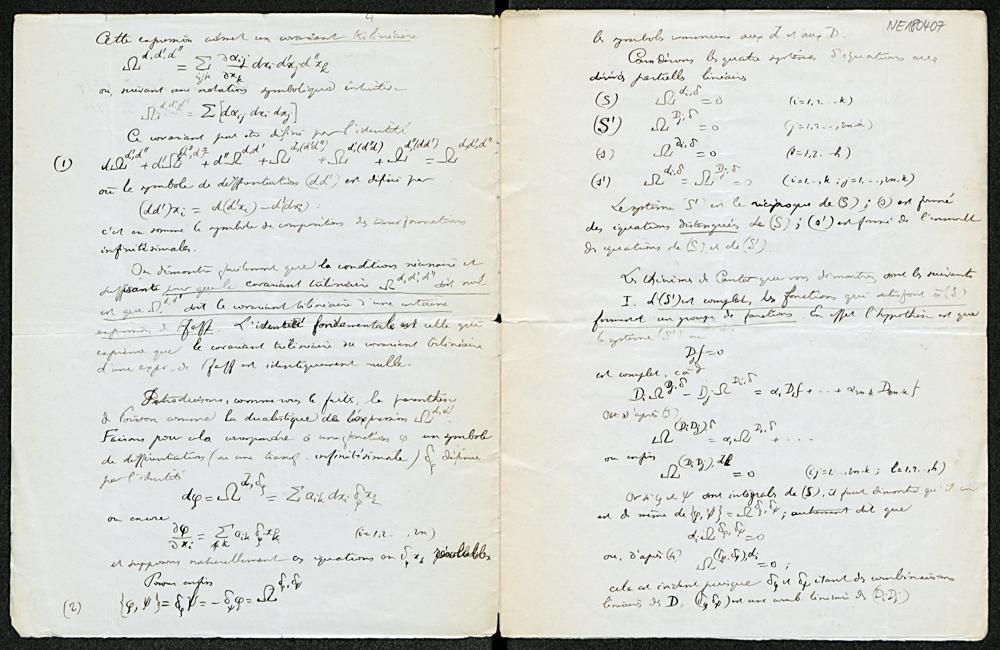 4
Cette expression admet un covariant trilinéaire
Ω^{d,d',d''} = Σ_{ijk} ∂a_{ij}/∂x_k dx_i d'x_j d''x_k
ou, suivant une notation symbolique
Ω^{d,d',d''} = Σ [da_{ij} dx_i dx_j]
Ce covariant peut être défini par l'identité
(1) dΩ^{d',d''} + d'Ω^{d'',d} + d''Ω^{d,d'} + Ω^{d,(d'd'')} + Ω^{d',(d''d)} + Ω^{d'',(dd')} = Ω^{d,d',d''}
où le symbole de différentiation (dd') est défini par
(dd')x_i = d(d'x_i) – d'(dx_i) :
c'est en somme le symbole de composition des transformations
infinitésimales.
On démontre facilement que la condition nécessaire et
suffisante pour que le covariant trilinéaire Ω^{d,d',d''} soit nul
est que Ω^{d,d'} soit le covariant bilinéaire d'une certaine
expression de Pfaff. L'identité fondamentale est celle qui
exprime que le covariant trilinéaire du covariant bilinéaire
d'une exp. de Pfaff est identiquement nulle.
Introduisons, comme vous le faites, la parenthèse
de Poisson comme la dualistique de l'expression Ω^{d,d'}.
Faisons pour cela correspondre à une fonction φ un symbole
de différentiation (ou une transf. infinitésimale) δ_φ définie
par l'identité
dφ = Ω^{d,δ_φ} = Σ a_{ik} dx_i δ_φ x_k
ou encore
∂φ/∂x_i = Σ_k a_{ik} δ_φ x_k (i=1,2..., 2n)
et supposons naturellement ces équations en δ_φ x_k résolubles
Posons enfin
(2) {φ,ψ} = δ_φψ = –δ_ψφ = Ω^{δ_φ,δ_ψ}
NE180407
les symboles communs aux d et aux D.
Considérons les quatre systèmes d'équations aux
dérivées partielles linéaires
(S) Ω^{d_i,δ} = 0 (i=1,2,...k)
(S') Ω^{D_j,δ} = 0 (j=1,2...,2n-k)
(s) Ω^{δ_i,δ} = 0 (i=1,2...h)
(s') Ω^{d_i,δ} = Ω^{D_j,δ} = 0 (i=1,..,k ; j=1,...,2n-k)
Le système S' est le réciproque de (S) ; (s) est formé
des équations distinguées de (S) ; (s') est formé de l'ensemble
des équations de (S) et de (S').
Les théorèmes de que vous démontrez sont les suivants
I. Si (S') est complet, les fonctions qui satisfont à (S)
forment un groupe de fonctions. En effet l'hypothèse est que
le système (S') ou
D_jf = 0
est complet, c.à.d
D_iΩ^{D_j,δ} – D_jΩ^{D_i,δ} = α_1D_1f + ··· + α_{2n-k}D_{2n-k}f
Or d'après (1)
Ω^{(D_iD_j),δ} = α_1Ω^{D_1,δ} + ····
ou enfin
Ω^{(D_iD_j),d_l} = 0 (i,j=1,..,2n-k ; l=1,2..,k)
Or si φ et ψ sont intégrals de (S), il faut démontrer qu'il en
est de même de {φ,ψ} = Ω^{δ_φ,δ_ψ} ; autrement dit que
d_iΩ^{δ_φ,δ_ψ} = 0
ou, d'après (1) Ω^{(δ_φδ_ψ),d_i} = 0 ;
cela est évident puisque δ_φ et δ_ψ étant des combinaisons
linéaires des D, (δ_φδ_ψ) est une comb. linéaire des (D_iD_j)